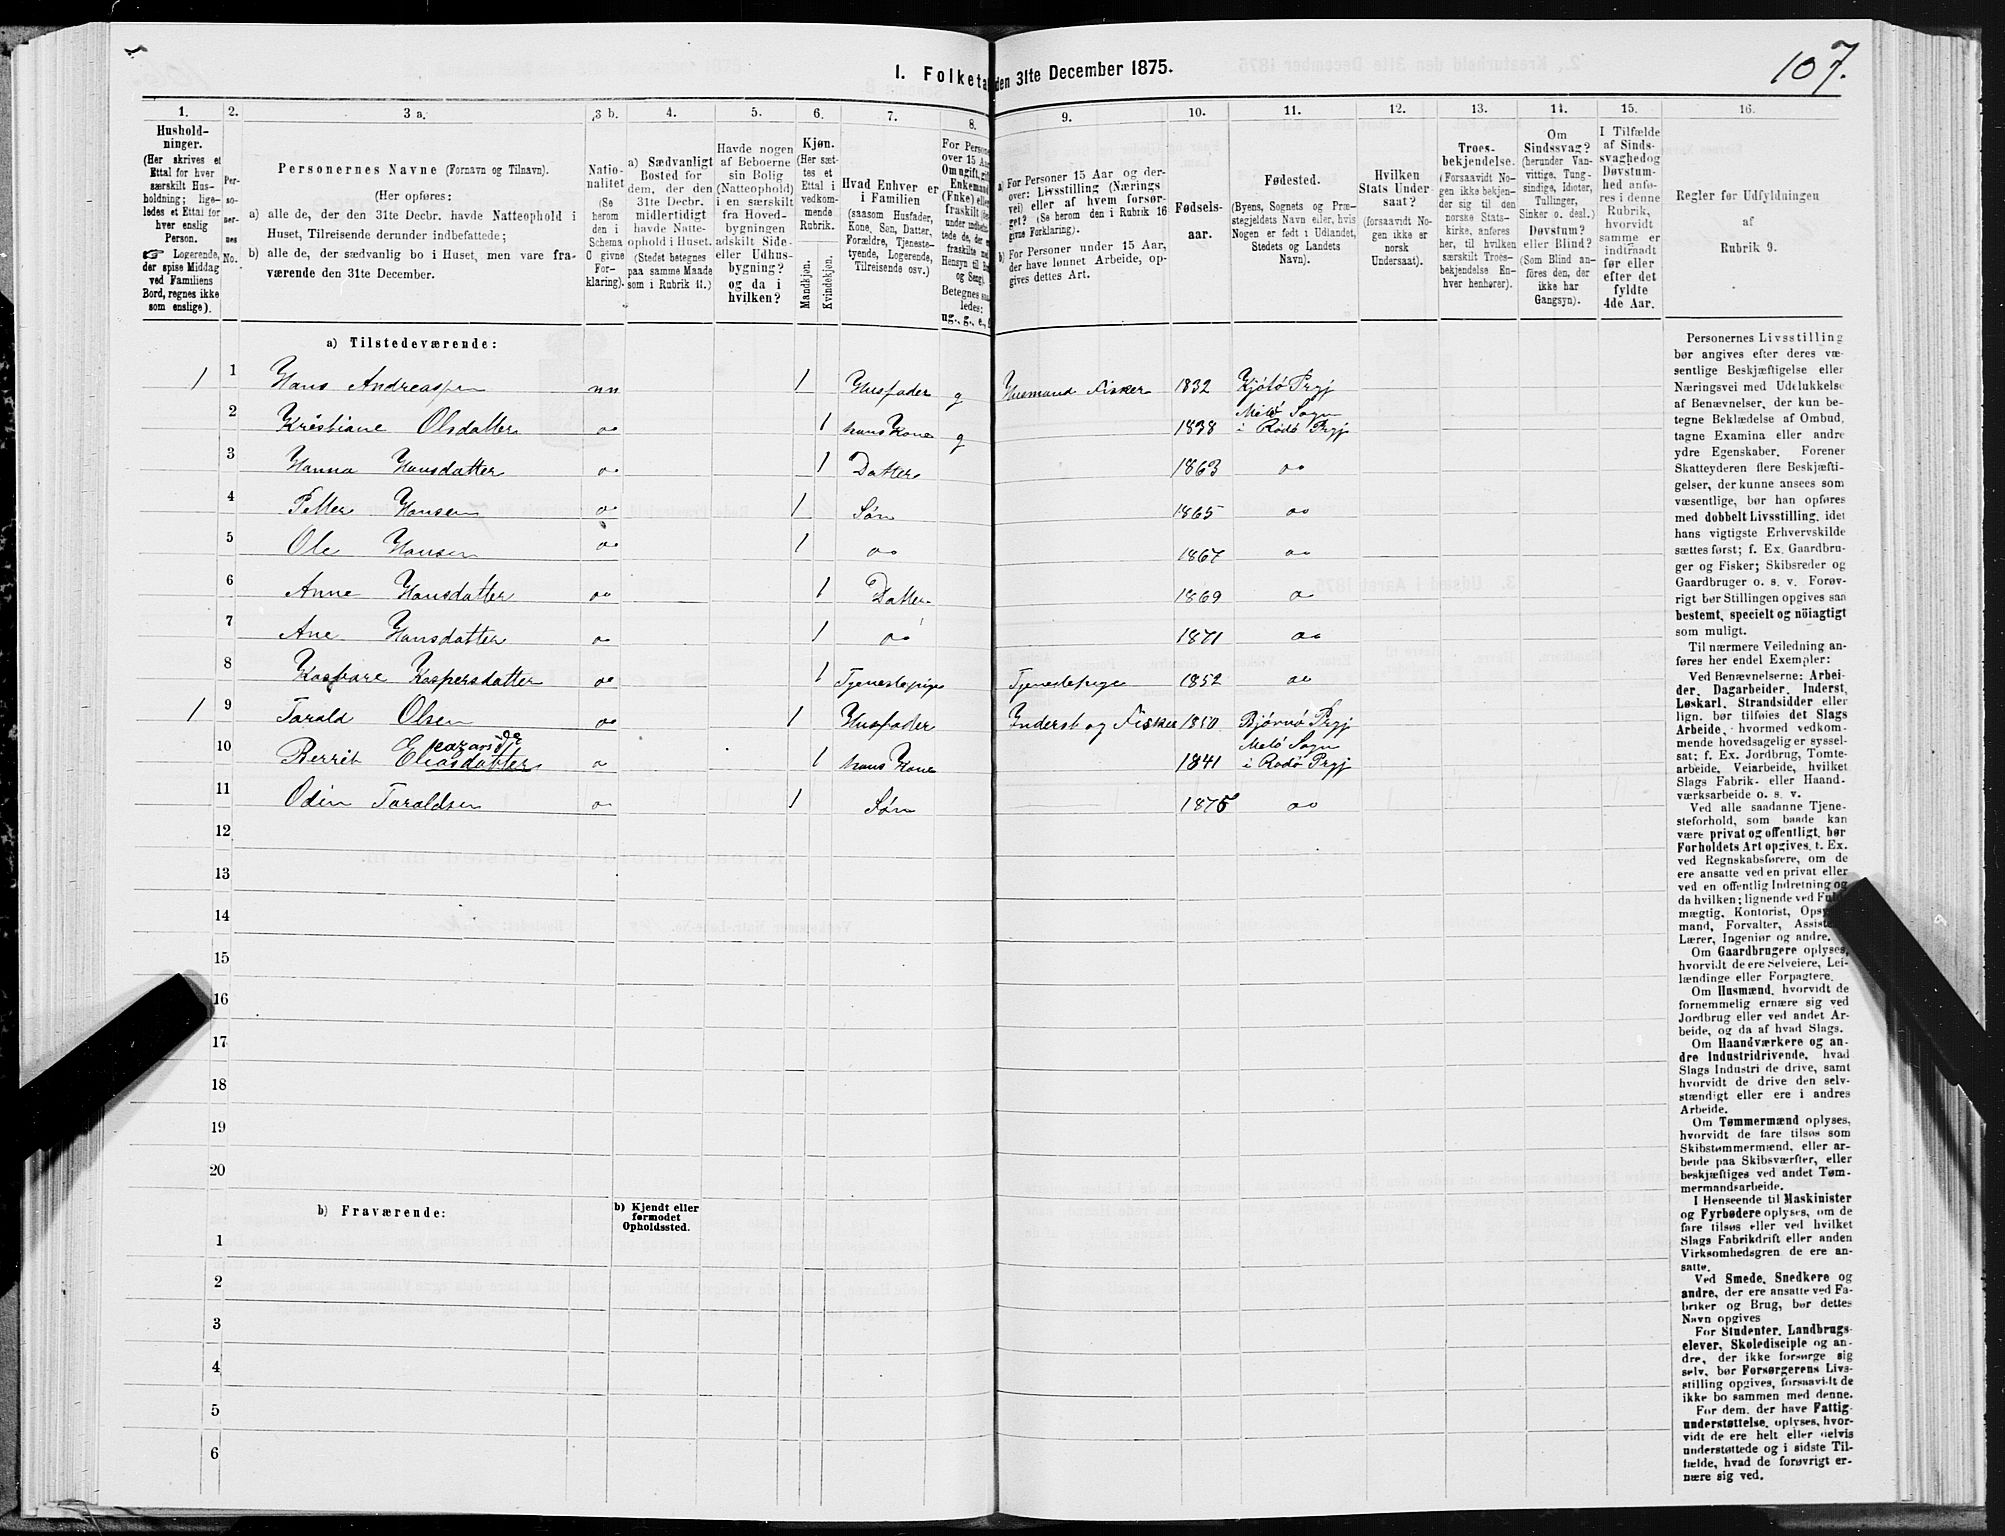 107.
I. Folketa den 31te December 1875.
1. 2. 3 a. 3 b. 4. 5. 6. 7. 8. 9. 10. 11. 12. 13. 14. 15. 16.
Hushold-
ninger.
(Her skrives et
Ettal for hver
særskilt Hus-
holdning; lige-
ledes et Ettal for
hver enslig
Person.
☞ Logerende,
der spise Middag
ved Familiens
Bord, regnes ikke
som enslige).
Per-
so-
ner-
nes
No.
Personernes Navne (Fornavn og Tilnavn).
(Her opføres:
a) alle de, der den 31te Decbr. havde Natteophold i
Huset, Tilreisende derunder indbefattede;
b) alle de, der sædvanlig bo i Huset, men vare fra-
værende den 31te December.
Natio-
nalitet
(Se
herom
den i
Schema
O givne
For-
klaring).
a) Sædvanligt
Bosted for
dem, der den
31te Decbr.
midlertidigt
havde Natte-
ophold i Huset.
(Stedet betegnes
paa samme Maade
som i Rubrik 11.)
Havde nogen
af Beboerne
sin Bolig
(Natteophold)
i en særskilt
fra Hoved-
bygningen
adskilt Side-
eller Udhus-
bygning?
og da i
hvilken?
Kjøn.
(Her sæt-
tes et
Ettal i
vedkom-
mende
Rubrik.
Mandkjøn.
Kvindekjøn.
Hvad Enhver er
i Familien
(saasom Husfader,
Kone, Søn, Datter,
Forældre, Tjeneste-
tyende, Logerende,
Tilreisende osv.)
For Persone
over 15 Aar
Om ugift, gift
Enkemand
(Enke) eller
fraskilt
Betegnes saa
ledes:
ug., g., e., f
a) For Personer 15 Aar og der-
over: Livsstilling (Nærings
vei) eller af hvem forsør-
get? (Se herom den i Rubrik 16
givne Forklaring).
b) For Personer under 15 Aar,
der have lønnet Arbeide, op-
gives dettes Art.
Fødsels-
aar.
Fødested.
(Byens, Sognets og Præ-
stegjeldets Navn eller, hvis
Nogen er født i Udlandet,
Stedets og Landets
Navn).
Hvilken
Stats Under-
saat?
(forsaavidt No-
gen ikke er
norsk
Undersaat).
Troes-
bekjendelse.
(Forsaavidt No-
gen ikke bekjen-
der sig til den
norske Stats-
kirke, anføres
her, til hvilken
særskilt Troes-
bekjendelse En-
hver henhører).
Om
Sindssvag?
(herunder Van-
vittige, Tung-
sindige, Idioter,
Tullinger,
Sinker o. desl.)
Døvstum?
eller Blind?
(Som Blind an-
føres den, der
ikke har
Gangsyn).
I Tilfælde
af Sinds-
svaghed og
Døvstum-
hed anfø-
res i denne
Rubrik,
hvorvidt
samme er
indtraadt
før eller
efter det
fyldte
4de Aar.
Regler for Udfyldningen
af
Rubrik 9.
a) Tilstedeværende:
1 1 Hans Andreassen nn 1 Husfader g Husmand Fisker 1832 Kjølø Prgj
2 Kristiane Olsdatter oo 1 hans Kone g 1838 Melø Sogn i Rødø Prgj
3 Hanna Hansdatter oo 1 Datter 1863 oo
4 Petter Hansen oo 1 Søn 1865 oo
5 Ole Hansen oo 1 oo 1867 oo
6 Anne Hansdatter oo 1 Datter 1869 o
7 Ane Hansdatter o 1 oo 1871 oo
8 Kaspersdatter oo 1 Tjenestepige Tjenestepige 1852 oo
1 9 Tarald Olsen oo 1 Husfader Inderst og Fisker 1850 Bjørnø Prgj
10 Berrit Eliasdatter o 1 hans Kone 1841 Melø Sogn i Rødø Prgj
11 Odin Taraldsen o 1 Søn 1875 oo
12
13
14
15
16
17
18
19
20
b) Fraværende:
b) Kjendt eller
formodet
Opholdssted.
1
2
3
4
5
6
Personernes Livsstilling
bør angives efter deres væ-
sentlige Beskjæftigelse eller
Næringsvei med Udelukkelse
af Benævnelser, der kun be-
tegne Beklædelse af Ombud,
tagne Examina eller andre
ydre Egenskaber. Forener
Skatteyderen flere Beskjæfti-
gelser, der kunne ansees som
væsentlige, bør han opføres
med dobbelt Livsstilling, idet
hans vigtigste Erhvervskilde
sættes først; f. Ex. Gaardbru-
ger og Fisker; Skibsreder og
Gaardbruger o. s. v. Forøv-
rigt bør Stillingen opgives saa
bestemt, specielt og nöiagtigt
som muligt.
Til nærmere Veiledning an-
føres her endel Exempler:
Ved Benævnelserne: Arbei-
der, Dagarbeider, Inderst,
Løskarl, Strandsidder eller
lign. bør tilføies det Slags
Arbeide, hvormed vedkom-
mende hovedsagelig er syssel-
sat; f. Ex. Jordbrug, Tomte-
arbeide, Veiarbeide, hvilket
Slags Fabrik- eller Haand-
værksarbeide o. s. v.
Ved alle saadanne Tjene-
steforhold, som baade kan
være privat og offentligt, bør
Forholdets Art opgives, f. Ex.
ved Regnskabsførere, om de
ere ansatte ved en privat eller
ved en offentlig Indretning og
da hvilken; lignende ved Fuld-
mægtig, Kontorist, Opsyns-
mand, Forvalter, Assistent,
Lærer, Ingeniør og andre.
Om Gaardbrugere oplyses,
hvorvidt de ere Selveiere, Lei-
lændinge eller Forpagtere.
Om Husmænd, hvorvidt de
fornemmelig ernære sig ved
Jordbrug eller ved andet Ar-
beide, og da af hvad Slags.
Om Haandværkere og an-
dre Industridrivende, hvad
Slags Industri de drive, samt
hvorvidt de drive den selv-
stændigt eller ere i andres
Arbeide.
Om Tømmermænd oplyses,
hvorvidt de fare tilsøs som
Skibstømmermænd, eller ar-
beide paa Skibsværfter, eller
beskjæftiges ved andet Tøm-
mermandsarbeide.
I Henseende til Maskinister
og Fyrbødere oplyses, om de
fare tilsøs eller ved hvilket
Slags Fabrikdrift eller anden
Virksomhedsgren de ere an-
satte.
Ved Smede, Snedkere og
andre, der ere ansatte ved Fa-
briker og Brug, bør dettes
Navn opgives
For Studenter, Landbrugs-
elever, Skoledisciple og an-
dre, der ikke forsørge sig
selv, bør Forsørgerens Livs-
stilling opgives, forsaavidt de
ikke bo sammen med denne.
For dem, der have Fattig-
understøttelse, oplyses, hvor-
vidt de ere helt eller delvis
understøttede og i sidste Til-
fælde, hvad de forøvrigt er-
nære sig ved.